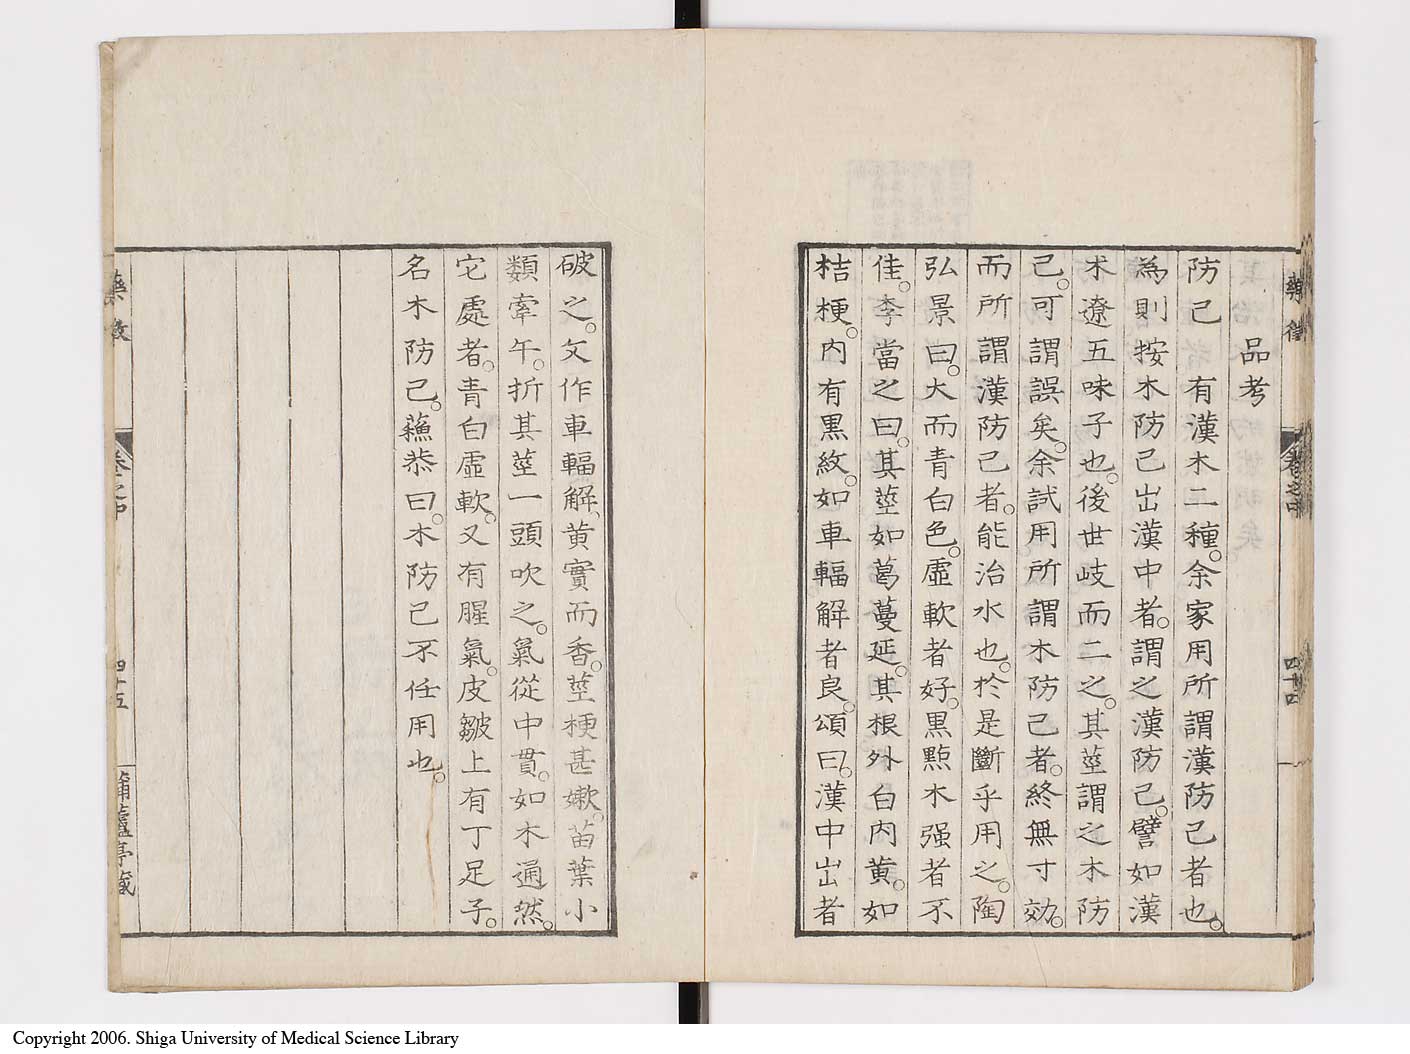 藥徵
卷之中
四十四
品考
防己 有漢木二種。余家用所謂漢防己者也。
為則按木防己出漢中者。謂之漢防己。譬如漢
朮遼五味子也。後世岐而二之。其莖謂之木防
己。可謂誤矣。余試用所謂木防己者。終無寸効。
而所謂漢防己者。能治水也。於是斷乎用之。陶
弘景曰。大而青白色。虛軟者好。黒黙木强者不
佳。李當之曰。其莖如葛蔓延。其根外白内黄。如
桔梗。内有黒紋。如車輻解者良。頌曰。漢中出者
破之。文作車輻解、黄實而香。莖梗甚嫰。苗葉小
類牽牛。折其莖一頭吹之。氣從中貫。如木通然。
它處者。青白虛軟。又有腥氣。皮皺上有丁足子。
名木防己。蘓恭曰。木防己不任用也。
藥徵
卷之中
四十五
Copyright 2006. Shiga University of Medical Science Library